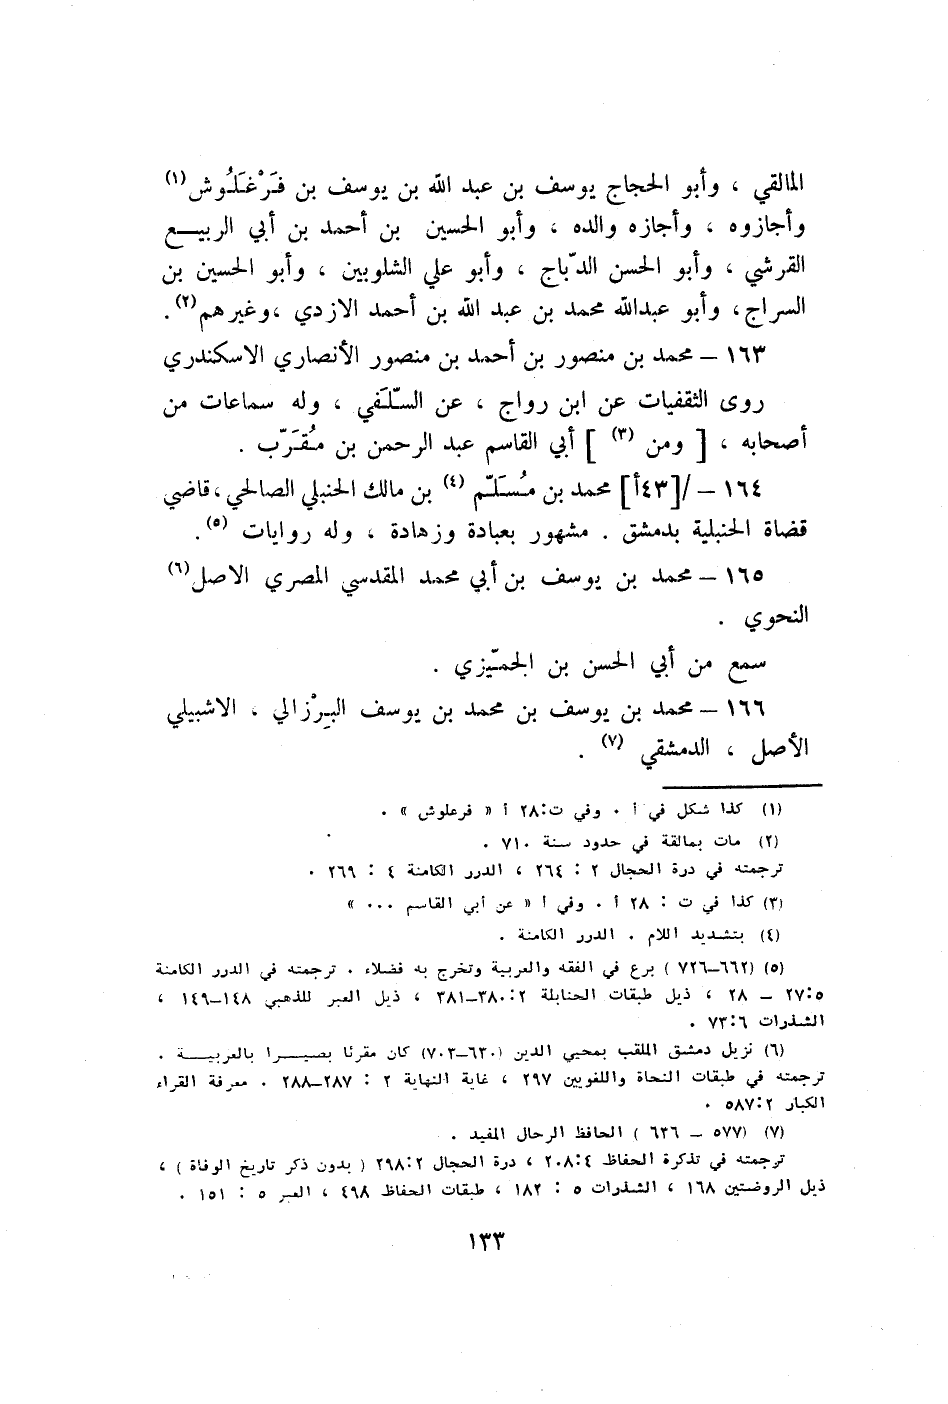 المالقي ، وأبو الحجاج يوسف بن عبد الله بن يوسف بن فَرْغَلُوش (١)
وأجازوه ، وأجازه والده ، وأبو الحسين بن أحمد بن أبي الربيع
القرشي ، وأبو الحسن الدبّاج ، وأبو علي الشلوبين ، وأبو الحسين بن
السراج، وأبو عبدالله محمد بن عبد الله بن أحمد الازدي ،وغيرهم (٢).
١٦٣ – محمد بن منصور بن أحمد بن منصور الأنصاري الاسكندري
روى الثقفيات عن ابن رواج ، عن السِّلَفي ، وله سماعات من
أصحابه ، [ ومن (٣) ] أبي القاسم عبد الرحمن بن مُقَرَّب .
١٦٤ – /[٤٣أ] محمد بن مُسَلَّم (٤) بن مالك الحنبلي الصالحي ،قاضي
قضاة الحنبلية بدمشق . مشهور بعبادة وزهادة ، وله روايات (٥).
١٦٥ – محمد بن يوسف بن أبي محمد المقدسي المصري الاصل (٦)
النحوي .
سمع من أبي الحسن بن الجمّيزي .
١٦٦ – محمد بن يوسف بن محمد بن يوسف البِرْزالي ، الاشبيلي
الأصل ، الدمشقي (٧) .
(١) كذا شكل في أ . وفي ت:٢٨ أ « فرعلوش » .
(٢) مات بمالقة في حدود سنة ٧١٠ .
ترجمته في درة الحجال ٢ : ٢٦٤ ، الدرر الكامنة ٤ : ٢٦٩ .
(٣) كذا في ت : ٢٨ أ . وفي أ « عن أبي القاسم ... »
(٤) بتشديد اللام . الدرر الكامنة .
(٥) (٦٦٢–٧٢٦ ) برع في الفقه والعربية وتخرج به فضلاء . ترجمته في الدرر الكامنة
٥:٢٧ – ٢٨ ، ذيل طبقات الحنابلة ٢:٣٨٠–٣٨١ ، ذيل العبر للذهبي ١٤٨–١٤٩ ،
الشذرات ٦:٧٣ .
(٦) نزيل دمشق الملقب بمحيي الدين (٦٣٠–٧٠٣) كان مقرئا بصيرا بالعربية .
ترجمته في طبقات النحاة واللغويين ٢٩٧ ، غاية النهاية ٢ : ٢٨٧–٢٨٨ . معرفة القراء
الكبار ٢:٥٨٧ .
(٧) (٥٧٧ – ٦٣٦ ) الحافظ الرحال المفيد .
ترجمته في تذكرة الحفاظ ٤:٢٠٨ ، درة الحجال ٢:٢٩٨ ( بدون ذكر تاريخ الوفاة ) ،
ذيل الروضتين ١٦٨ ، الشذرات ٥ : ١٨٢ ، طبقات الحفاظ ٤٩٨ ، العبر ٥ : ١٥١ .
١٣٣